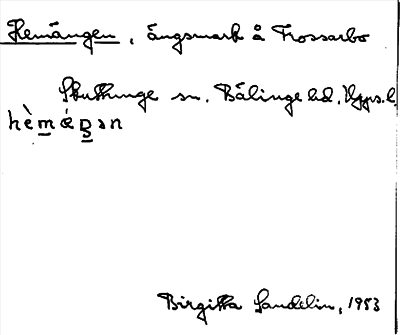 Hemängen, ängsmark å Frossarbo
Skuttunge sn. Bälinge hd. Upps.l.
hèmǽŋən
Birgitta Sandelin, 1953